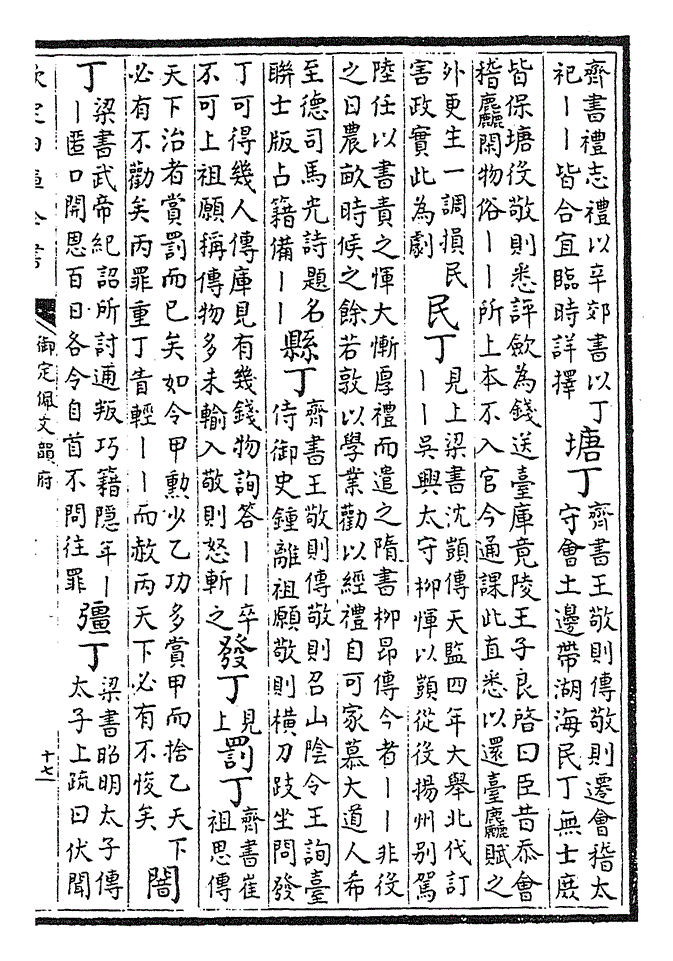 齊書禮志禮以辛郊書以丁
祀丨丨皆合宜臨時詳擇
塘丁
齊書王敬則傳敬則遷會稽太
守會土邊帶湖海民丁無士庶
皆保塘役敬則悉評斂為錢送臺庫竟陵王子良啓曰臣昔忝會
稽麤閑物俗丨丨所上本不入官今通課此直悉以還臺麤賦之
外更生一調損民
害政實此為劇
民丁
見上梁書沈顗傳天監四年大舉北伐訂
丨丨吳興太守柳惲以顗從役揚州别駕
陸任以書責之惲大慚厚禮而遣之隋書柳昂傳今者丨丨非役
之日農畝時候之餘若敦以學業勸以經禮自可家慕大道人希
至德司馬光詩題名
聯士版占籍備丨丨
縣丁
齊書王敬則傳敬則召山陰令王詢臺
侍御史鍾離祖願敬則横刀跂坐問發
丁可得幾人傳庫見有幾錢物詢答丨丨卒
不可上祖願稱傳物多未輸入敬則怒斬之
發丁
見
上
罰丁
齊書崔
祖思傳
天下治者賞罰而已矣如令甲勲少乙功多賞甲而捨乙天下
必有不勸矣丙罪重丁眚輕丨丨而赦丙天下必有不悛矣
闇
丁
梁書武帝紀詔所討逋叛巧籍隠年丨
丨匿口開恩百日各令自首不問往罪
彊丁
梁書昭明太子傳
太子上疏曰伏聞
欽定四庫全書
御定佩文韻府
十七